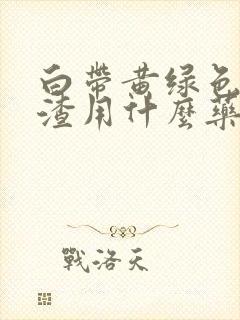 白帶黃绿色
渣用什麼藥
戰洛天